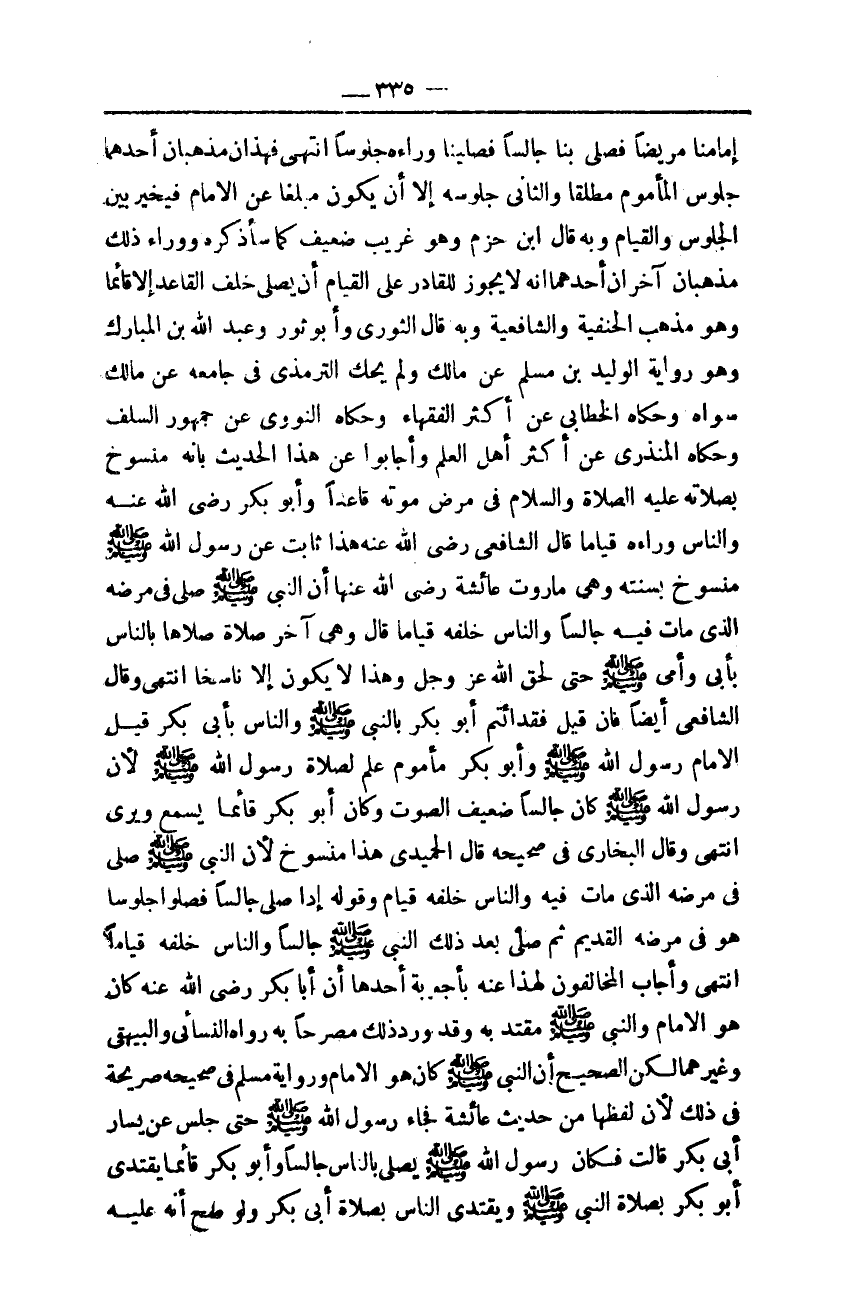 — ٣٣٥ —
إمامنا مريضاً فصلى بنا جالساً فصلينا وراءه جلوساً انتهى فهذان مذهبان أحدهما
جلوس المأموم مطلقا والثانى جلوسه إلا أن يكون مبلغا عن الامام فيخير بين
الجلوس والقيام وبه قال ابن حزم وهو غريب ضعيف كما سأذكره ووراء ذلك
مذهبان آخران أحدهما انه لا يجوز للقادر على القيام أن يصلى خلف القاعد إلا قائما
وهو مذهب الحنفية والشافعية وبه قال الثورى وأبو ثور وعبد الله بن المبارك
وهو رواية الوليد بن مسلم عن مالك ولم يحك الترمذى فى جامعه عن مالك
سواه وحكاه الخطابى عن أكثر الفقهاء وحكاه النووى عن جمهور السلف
وحكاه المنذرى عن أكثر أهل العلم وأجابوا عن هذا الحديث بانه منسوخ
بصلاته عليه الصلاة والسلام فى مرض موته قاعداً وأبو بكر رضى الله عنه
والناس وراءه قياما قال الشافعى رضى الله عنه هذا ثابت عن رسول الله ﷺ
منسوخ بسنته وهى ماروت عائشة رضى الله عنها أن النبى ﷺ صلى فى مرضه
الذى مات فيه جالساً والناس خلفه قياما قال وهى آخر صلاة صلاها بالناس
بأبى وأمى ﷺ حتى لحق الله عز وجل وهذا لا يكون إلا ناسخا انتهى وقال
الشافعى أيضاً فان قيل فقد ائتم أبو بكر بالنبى ﷺ والناس بأبى بكر قيل
الامام رسول الله ﷺ وأبو بكر مأموم علم لصلاة رسول الله ﷺ لأن
رسول الله ﷺ كان جالساً ضعيف الصوت وكان أبو بكر قائما يسمع ويرى
انتهى وقال البخارى فى صحيحه قال الحميدى هذا منسوخ لأن النبى ﷺ صلى
فى مرضه الذى مات فيه والناس خلفه قيام وقوله إدا صلى جالساً فصلوا جلوسا
هو فى مرضه القديم ثم صلى بعد ذلك النبى ﷺ جالساً والناس خلفه قياماً
انتهى وأجاب المخالفون لهذا عنه بأجوبة أحدها أن أبا بكر رضى الله عنه كان
هو الامام والنبى ﷺ مقتد به وقد ورد ذلك مصرحاً به رواه النسائى والبيهقى
وغيرهما لكن الصحيح أن النبى ﷺ كان هو الامام ورواية مسلم فى صحيحه صريحة
فى ذلك لأن لفظها من حديث عائشة فجاء رسول الله ﷺ حتى جلس عن يسار
أبى بكر قالت فكان رسول الله ﷺ يصلى بالناس جالساً وأبو بكر قائما يقتدى
أبو بكر بصلاة النبى ﷺ ويقتدى الناس بصلاة أبى بكر ولو صح أنه عليه